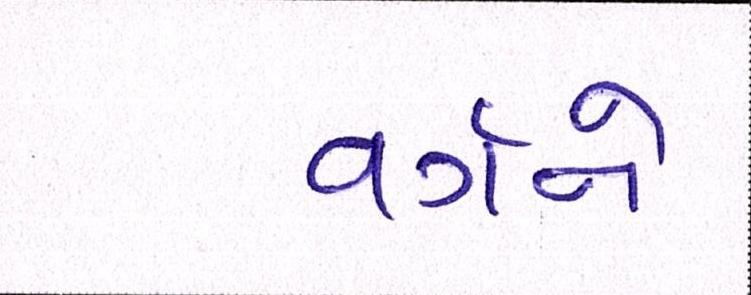 વર્ગને